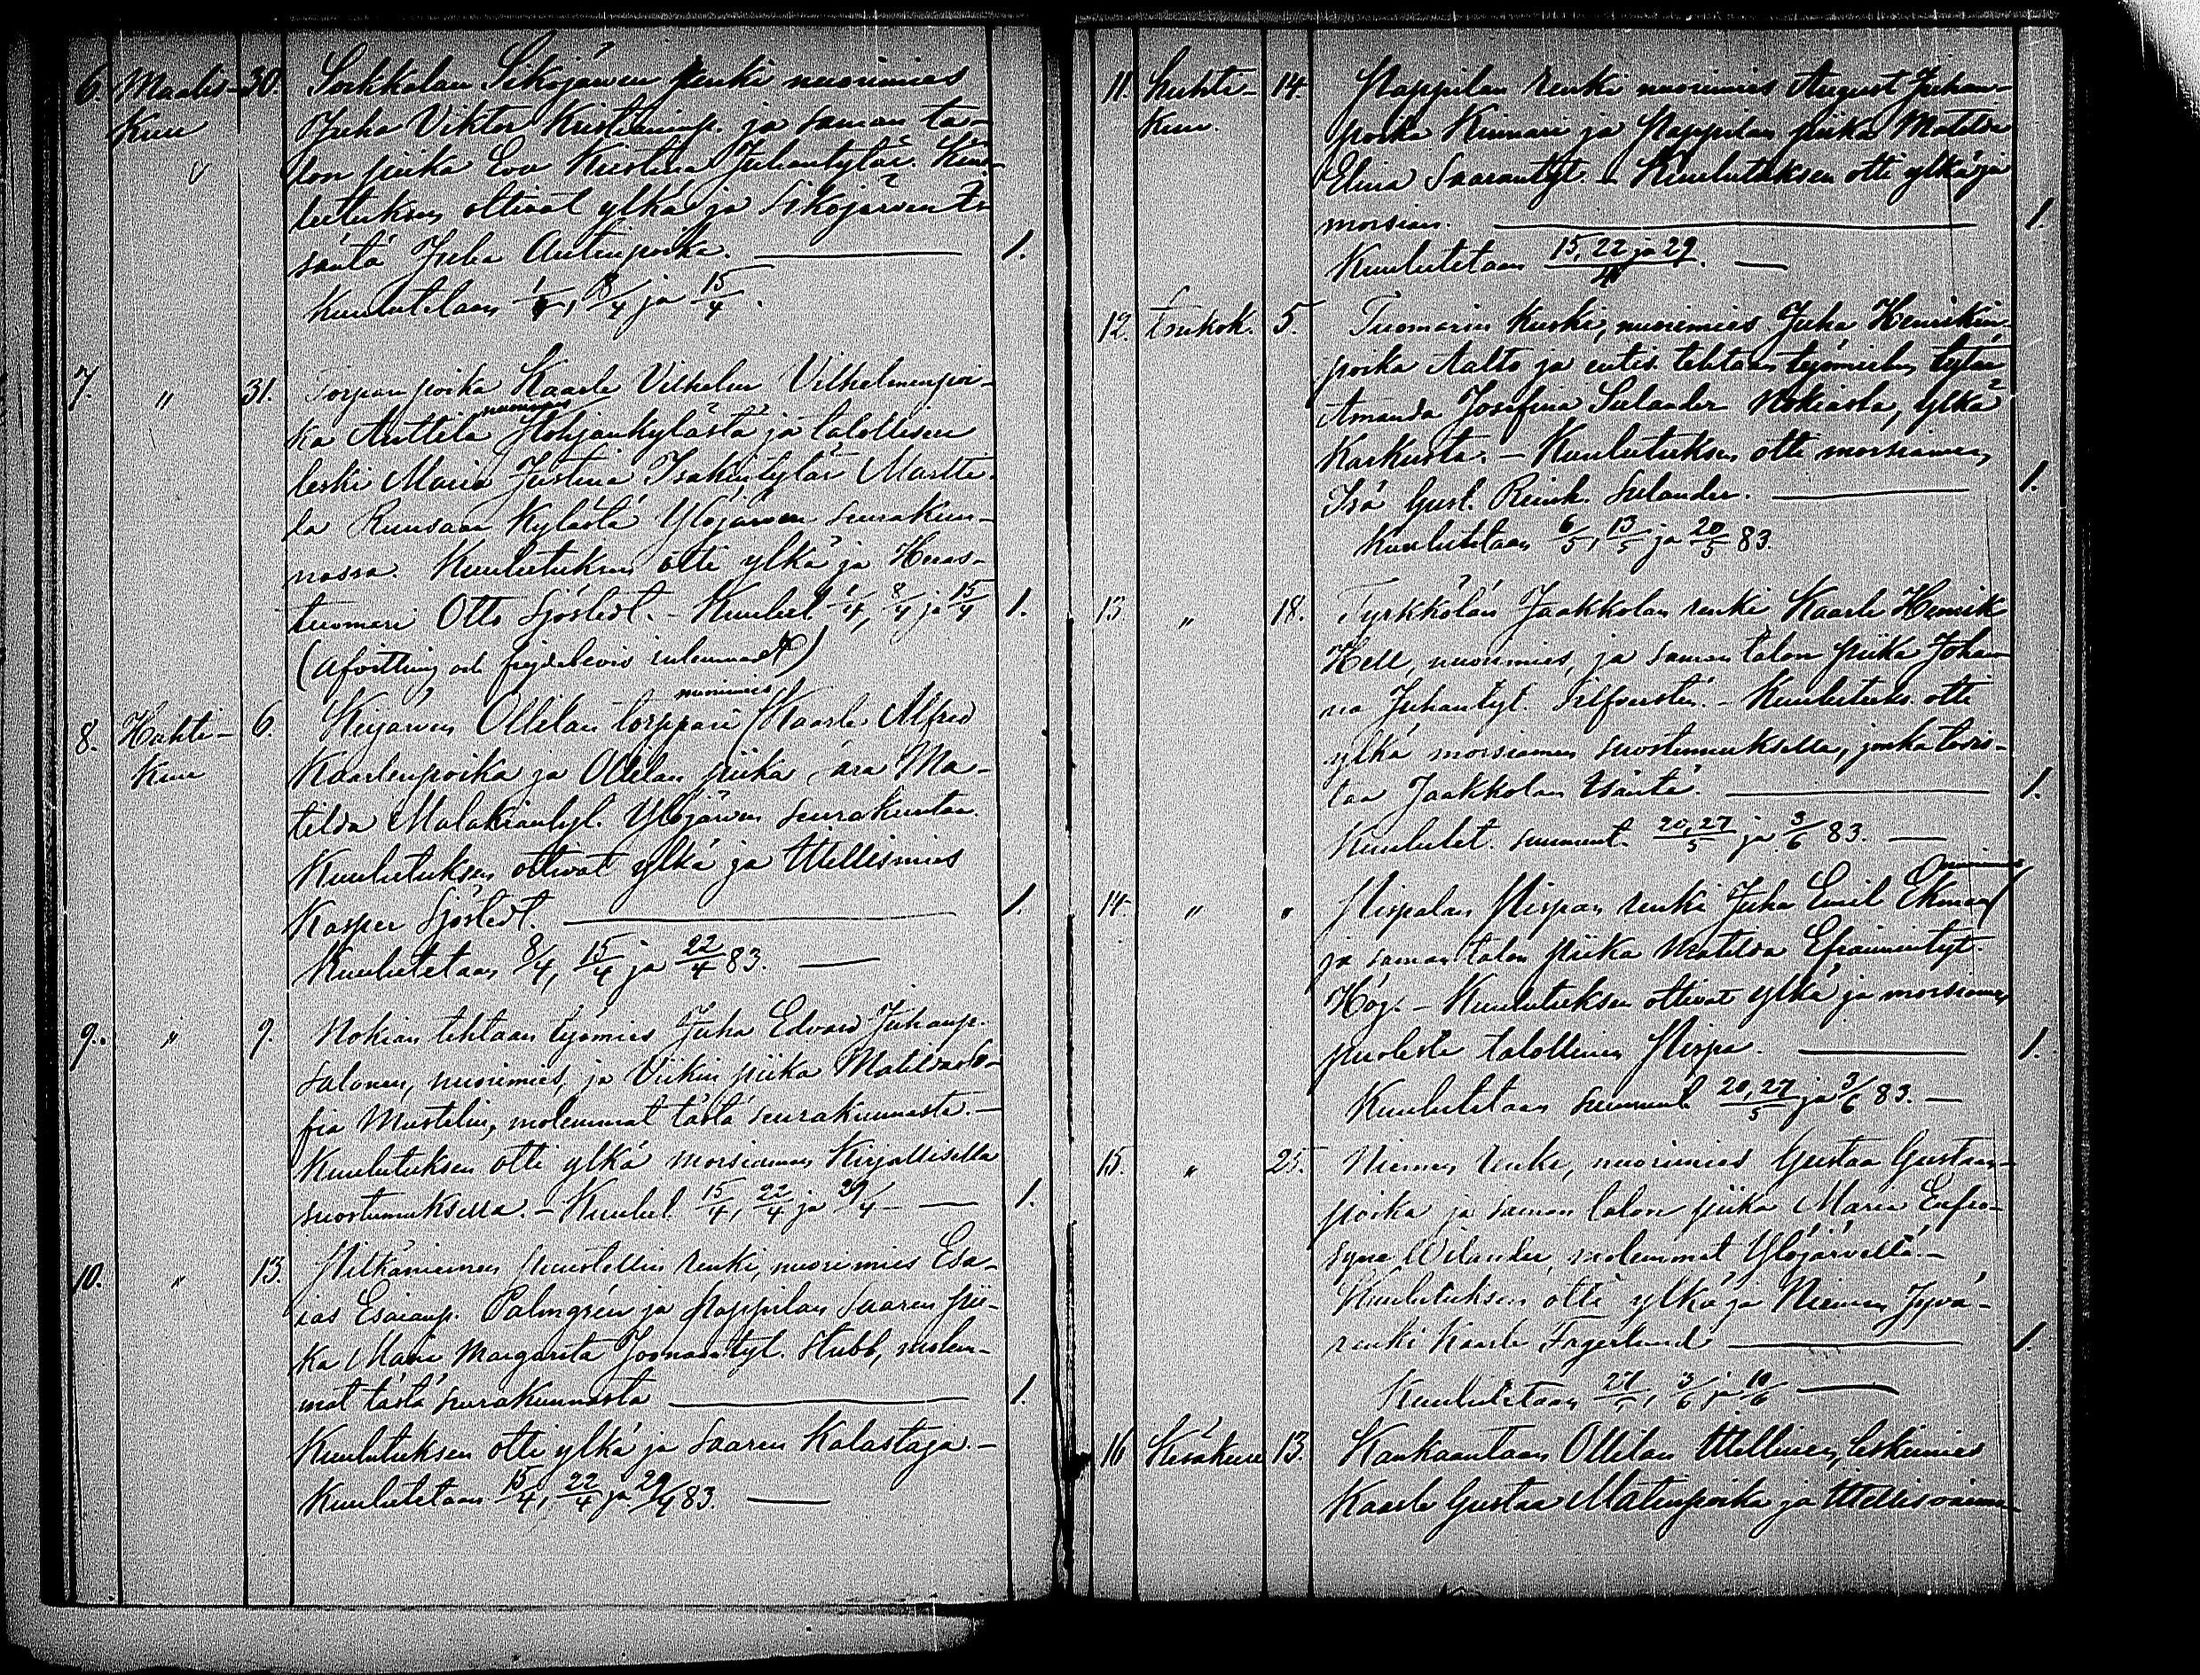 6. Maalis- 30. Sorkkolan Sikojärwen renki nuorimies
kuu Juha Viktor Kristianinp. ja saman ta-
lon piika Eva Kristina Juhantytär. Kuu-
lutuksen ottivat ylkä ja Sikojärwen I-
säntä Juha Antinpoika. 1.
Kuulutetaan 1/4, 8/4 ja 15/4.
7. " 31. Torpan poika Kaarle Vilhelm Vilhelminpoi-
nuorimies
ka Anttila Pohjankylästä ja talollisen
leski Maria Justina Isakintytär Martti-
la Runsaan kylästä Ylöjärwen seurakun-
nassa. Kuulutuksen otti ylkä ja Heras-
tuomari Otto Sjöstedt. - Kuulut. 1/4, 8/4 ja 15/4 1.
(Afvittring och frejdebevis inlemnadt)
nuorimies
8. Huhti- 6. Keijärwen Ollilan torppari Kaarle Alfred
kuu Kaarlenpoika ja Ollilan piika Sara Ma-
tilda Malakiantyt. Ylöjärwen seurakuntaa.
Kuulutuksen ottivat ylkä ja Itellismies
Kasper Sjöstedt. 1.
Kuulutetaan 8/4, 15/4 ja 22/4 83.
9. " 9. Nokian tehtaan työmies Juha Edvard Juhanp.
Salonen, nuorimies, ja Viikin piika Matilda So-
fia Mustelin, molemmat tästä seurakunnasta. -
Kuulutuksen otti ylkä morsiamen kirjallisella
suostumuksella. - Kuulut. 15/4, 22/4 ja 29/4 - 1.
10. " 13. Pitkäniemen puustellin renki, nuorimies Esa-
ias Esaianp. Palmgrén ja Pappilan Saaren pii-
ka Maria Margareta Joonaantyt. Stubb, molem-
mat tästä seurakunnasta 1.
Kuulutuksen otti ylkä ja Saaren Kalastaja. -
Kuulutetaan 15/4, 22/4 ja 29/4 83.
11. Huhti- 14. Pappilan renki nuorimies August Juhan-
kuu. poika Kinnari ja Pappilan piika Matilda
Elina Saarantyt. - Kuulutuksen otti ylkä ja
morsian. 1.
Kuulutetaan 15, 22 ja 29/4. -
12. Toukok. 5. Tuomarin kuski, nuorimies Juha Henrikin-
poika Aalto ja entis. tehtaan työmiehen tytär
Amanda Josefina Sulander Nokiasta, ylkä
Karkusta. - Kuulutuksen otti morsiamen
Isä Gust. Reinh. Sulander. 1.
Kuulutetaan 6/5, 13/5 ja 20/5 83.
13. " 18. Tyrkkölän Jaakkolan renki Kaarle Henrik
Hell, nuorimies, ja saman talon piika Johan-
na Juhantyt. Silfverstén. - Kuulutuks. otti
ylkä morsiamen suostumuksella, jonka todis-
taa Jaakkolan Isäntä. 1.
Kuulutet. sunnunt. 20, 27/5 ja 3/6 83. -
nuorimies
14. " " Pispalan Pispan renki Juha Emil Ekman
ja saman talon piika Matilda Efraimintyt.
Hög. - Kuulutuksen ottivat ylkä ja morsiamen
puolesta talollinen Pispa. 1.
Kuulutetaan sunnunt. 20, 27/5 ja 3/6 83. -
15. " 25. Niemen renki, nuorimies Gustaa Gustaan-
poika ja saman talon piika Maria Eufro-
syne Wilander, molemmat Ylöjärveltä. -
Kuulutuksen otti ylkä ja Niemen Jyvä-
renki Kaarle Fagerlund 1.
Kuulutetaan 27/5, 3/6 ja 10/6
16 Kesäkuu 13. Kankaantaan Ollilan Itellinen, leskimies
Kaarle Gustaa Matinpoika ja Itellisvaimo